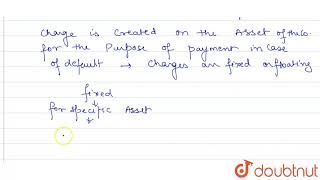 Charge is Created on the Asset of the Co.
for the Purpose of payment in Case
of default → Charges an fixed or floating
fixed
for specific Asset
doubtnut